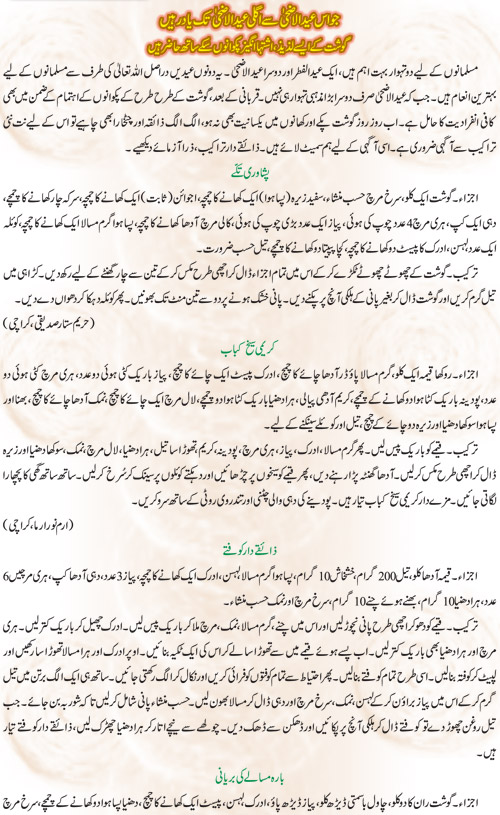 جو اس عیدالاضحیٰ سے اگلی عیدالاضحیٰ تک یاد رہیں
گوشت کے ایسے لذیذ، اشتہا انگیز پکوانوں کے ساتھ حاضر ہیں
مسلمانوں کے لیے دو تہوار بہت اہم ہیں، ایک عیدالفطر اور دوسرا عیدالاضحیٰ۔ یہ دونوں عیدیں دراصل اللہ تعالیٰ کی طرف سے مسلمانوں کے لیے
بہترین انعام ہیں۔ جب کہ عیدالاضحیٰ صرف دوسرا بڑا مذہبی تہوار ہی نہیں۔ قربانی کے بعد گوشت کے طرح طرح کے پکوانوں کے اہتمام کے ضمن میں بھی
کافی انفرادیت کا حامل ہے۔ اب روز روز گوشت پکے اور کھانوں میں یکسانیت بھی نہ ہو، الگ الگ ذائقہ اور چٹخارا بھی چاہیے تو اس کے لیے نت نئی
تراکیب سے آگہی ضروری ہے۔ اسی آگہی کے لیے ہم سمیٹ لائے ہیں۔ ذائقے دار تراکیب، ذرا آزمائے دیکھیے۔
پشاوری تکے
اجزاء۔ گوشت ایک کلو، سرخ مرچ حسب منشاء، سفید زیرہ (پسا ہوا) ایک کھانے کا چمچہ، اجوائن (ثابت) ایک کھانے کا چمچہ، سرکہ چار کھانے کا چمچے،
دہی ایک کپ، ہری مرچ 4 عدد چوپ کی ہوئی، پیاز ایک عدد بڑی چوپ کی ہوئی، کالی مرچ آدھا کھانے کا چمچہ، پسا ہوا گرم مسالا ایک کھانے کا چمچہ، کوئلہ
ایک عدد لہسن، ادرک کا پیسٹ دو کھانے کا چمچہ، کچا پپیتا دو کھانے کا چمچے، تیل حسب ضرورت۔
ترکیب۔ گوشت کے چھوٹے چھوٹے ٹکڑے کر کے اس میں تمام اجزاء ڈال کر اچھی طرح مکس کر کے تین سے چار گھنٹے کے لیے رکھ دیں۔ کڑاہی میں
تیل گرم کریں اور گوشت ڈال کر بغیر پانی کے ہلکی آنچ پر پکنے دیں۔ پانی خشک ہونے پر دو سے تین منٹ تک بھونیں۔ پھر کوئلہ دہکا کر دھواں دے دیں۔
(حریم ستار صدیقی، کراچی)
کریمی سیخ کباب
اجزاء۔ روکھا قیمہ ایک کلو، گرم مسالا پاؤڈر آدھا چائے کا چمچ، ادرک پیسٹ ایک چائے کا چمچ، پیاز باریک کٹی ہوئی دو عدد، ہری مرچ کٹی ہوئی دو
عدد، پودینہ باریک کٹا ہوا دو کھانے کے چمچے، کریم آدھی پیالی، ہرا دھنیا باریک کٹا ہوا دو چمچے، لال مرچ ایک چائے کا چمچ نمک آدھا چائے کا چمچ، بھنا اور
پسا ہوا سوکھا دھنیا اور زیرہ دو چائے کے چمچ، تیل اور کوئلے سینکنے کے لیے۔
ترکیب۔ قیمے کو باریک پیس لیں۔ پھر گرم مسالا، ادرک، پیاز، ہری مرچ، پودینہ، کریم، تھوڑا سا تیل، ہرا دھنیا، لال مرچ، نمک، سوکھا دھنیا اور زیرہ
ڈال کر اچھی طرح مکس کر لیں۔ آدھا گھنٹہ پڑا رہنے دیں، پھر قیمے کو سیخوں پر چڑھائیں اور دہکتے کوئلوں پر سینک کر سُرخ کر لیں۔ ساتھ ساتھ گھی کا پچھارا
لگاتی جائیں۔ مزے دار کریمی سیخ کباب تیار ہیں۔ پودینے کی دہی والی چٹنی اور تندروی روٹی کے ساتھ سرو کریں۔
(ارم نورارما، کراچی)
ذائقے دار کوفتے
اجزاء۔ قیمہ آدھا کلو، تیل 200 گرام، خشخاش 10 گرام، پسا ہوا گرم مسالا لہسن، ادرک ایک کھانے کا چمچہ، پیاز 3 عدد، دہی آدھا کپ، ہری مرچیں 6
عدد، ہرا دھنیا 10 گرام، بھنے ہوئے چنے 10 گرام، سرخ مرچ اور نمک حسب منشاء۔
ترکیب۔ قیمے کو دھو کر اچھی طرح پانی نچوڑ لیں اور اس میں چنے، گرم مسالا، نمک، مرچ ملا کر باریک پیس لیں۔ ادرک چھیل کر باریک کتر لیں۔ ہری
مرچ اور ہرا دھنیا بھی باریک کتر لیں۔ اب پسے ہوئے قیمے میں سے تھوڑا سا لے کر اس کی ایک ٹکیہ بنائیں۔ اوپر ادرک اور ہرا مسالا تھوڑا سا رکھیں اور
لپیٹ کر کوفتہ بنالیں۔ اسی طرح تمام کوفتے بنالیں۔ پھر احتیاط سے تمام کوفتوں کو فرائی کریں اور نکال کر الگ رکھتی جائیں۔ ساتھ ہی ایک الگ برتن میں تیل
گرم کر کے اس میں پیاز براؤن کر کے لہسن، نمک، سرخ مرچ اور دہی ڈال کر مسالا بھون لیں۔ حسب منشاء پانی شامل کر لیں تا کہ شوربہ بن جائے۔ جب
تیل روغن چھوڑ دے تو کوفتے ڈال کر ہلکی آنچ پر پکائیں اور ڈھکن سے ڈھک دیں۔ چولھے سے نیچے اتار کر ہرا دھنیا چھڑک لیں، ذائقے دار کوفتے تیار
ہیں۔
بارہ مسالے کی بریانی
اجزاء۔ گوشت ران کا دو کلو، چاول باسمتی ڈیڑھ کلو، پیاز ڈیڑھ پاؤ، ادرک لہسن، پیسٹ ایک کھانے کا چمچ، دھنیا پسا ہوا دو کھانے کے چمچے، سرخ مرچ